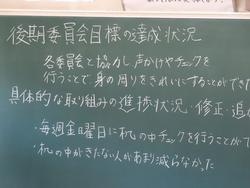 後期委員会目標の達成状況
各委員と協力し声かけやチェックを
行うことで身の周りをきれいにすることができた
具体的な取り組みの進捗状況・修正・追
・毎週金曜日に机の中チェックを行うことがで
・机の中がきたない人があまり減らなかった